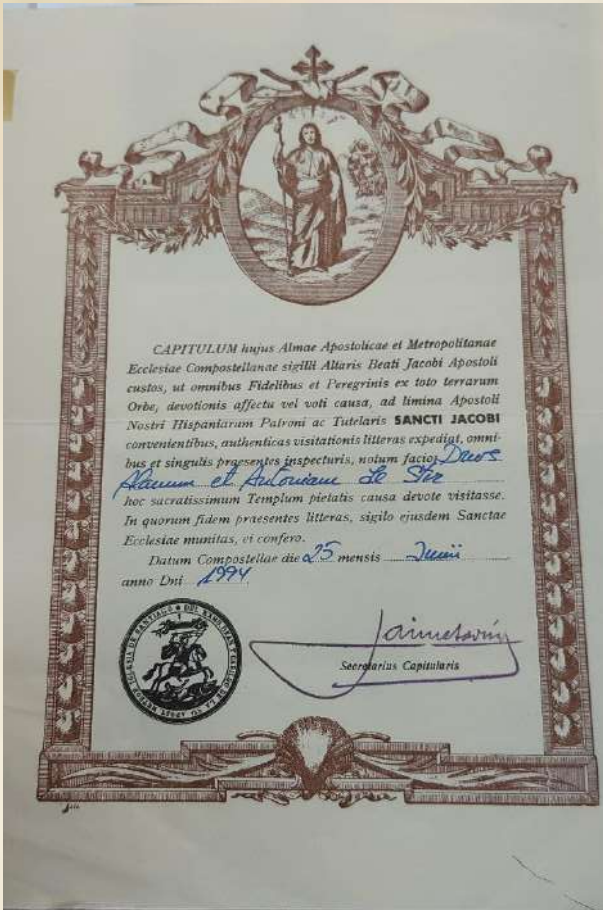 CAPITULUM hujus Almae Apostolicae et Metropolitanae
Ecclesiae Compostellanae sigilli Altaris Beati Jacobi Apostoli
custos, ut omnibus Fidelibus et Peregrinis ex toto terrarum
Orbe, devotionis affectu vel voti causa, ad limina Apostoli
Nostri Hispaniarum Patroni ac Tutelaris SANCTI JACOBI
convenientibus, authenticas visitationis litteras expediat, omni-
bus et singulis praesentes inspecturis, notum facio: Dnos
Alanum et Antoniam Le Stir
hoc sacratissimum Templum pietatis causa devote visitasse.
In quorum fidem praesentes litteras, sigilo ejusdem Sanctae
Ecclesiae munitas, ei confero.
Datum Compostellae die 25 mensis Junii
anno Dni 1994
Secretarius Capitularis